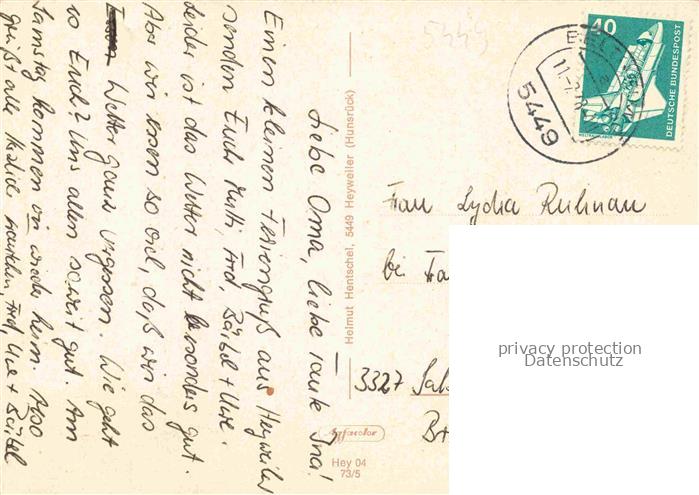 Liebe Oma, liebe Tante Ina!
Einen kleinen Feriengruß aus Heyweiler
senden Euch Mutti, Fred, Bärbel + Uwe.
Leider ist das Wetter nicht besonders gut.
Aber wir essen so viel, daß wir das
Wetter ganz vergessen. Wie geht
es Euch? Uns allen soweit gut. Am
Samstag kommen wir wieder heim. Also
grüßt alle Fred, Uwe + Bärbel
Helmut Hentschel, 5449 Heyweiler (Hunsrück)
Agfacolor
Hey 04
73/5
5449
40
DEUTSCHE BUNDESPOST
5449
Frau Lydia
bei
3327
privacy protection
Datenschutz